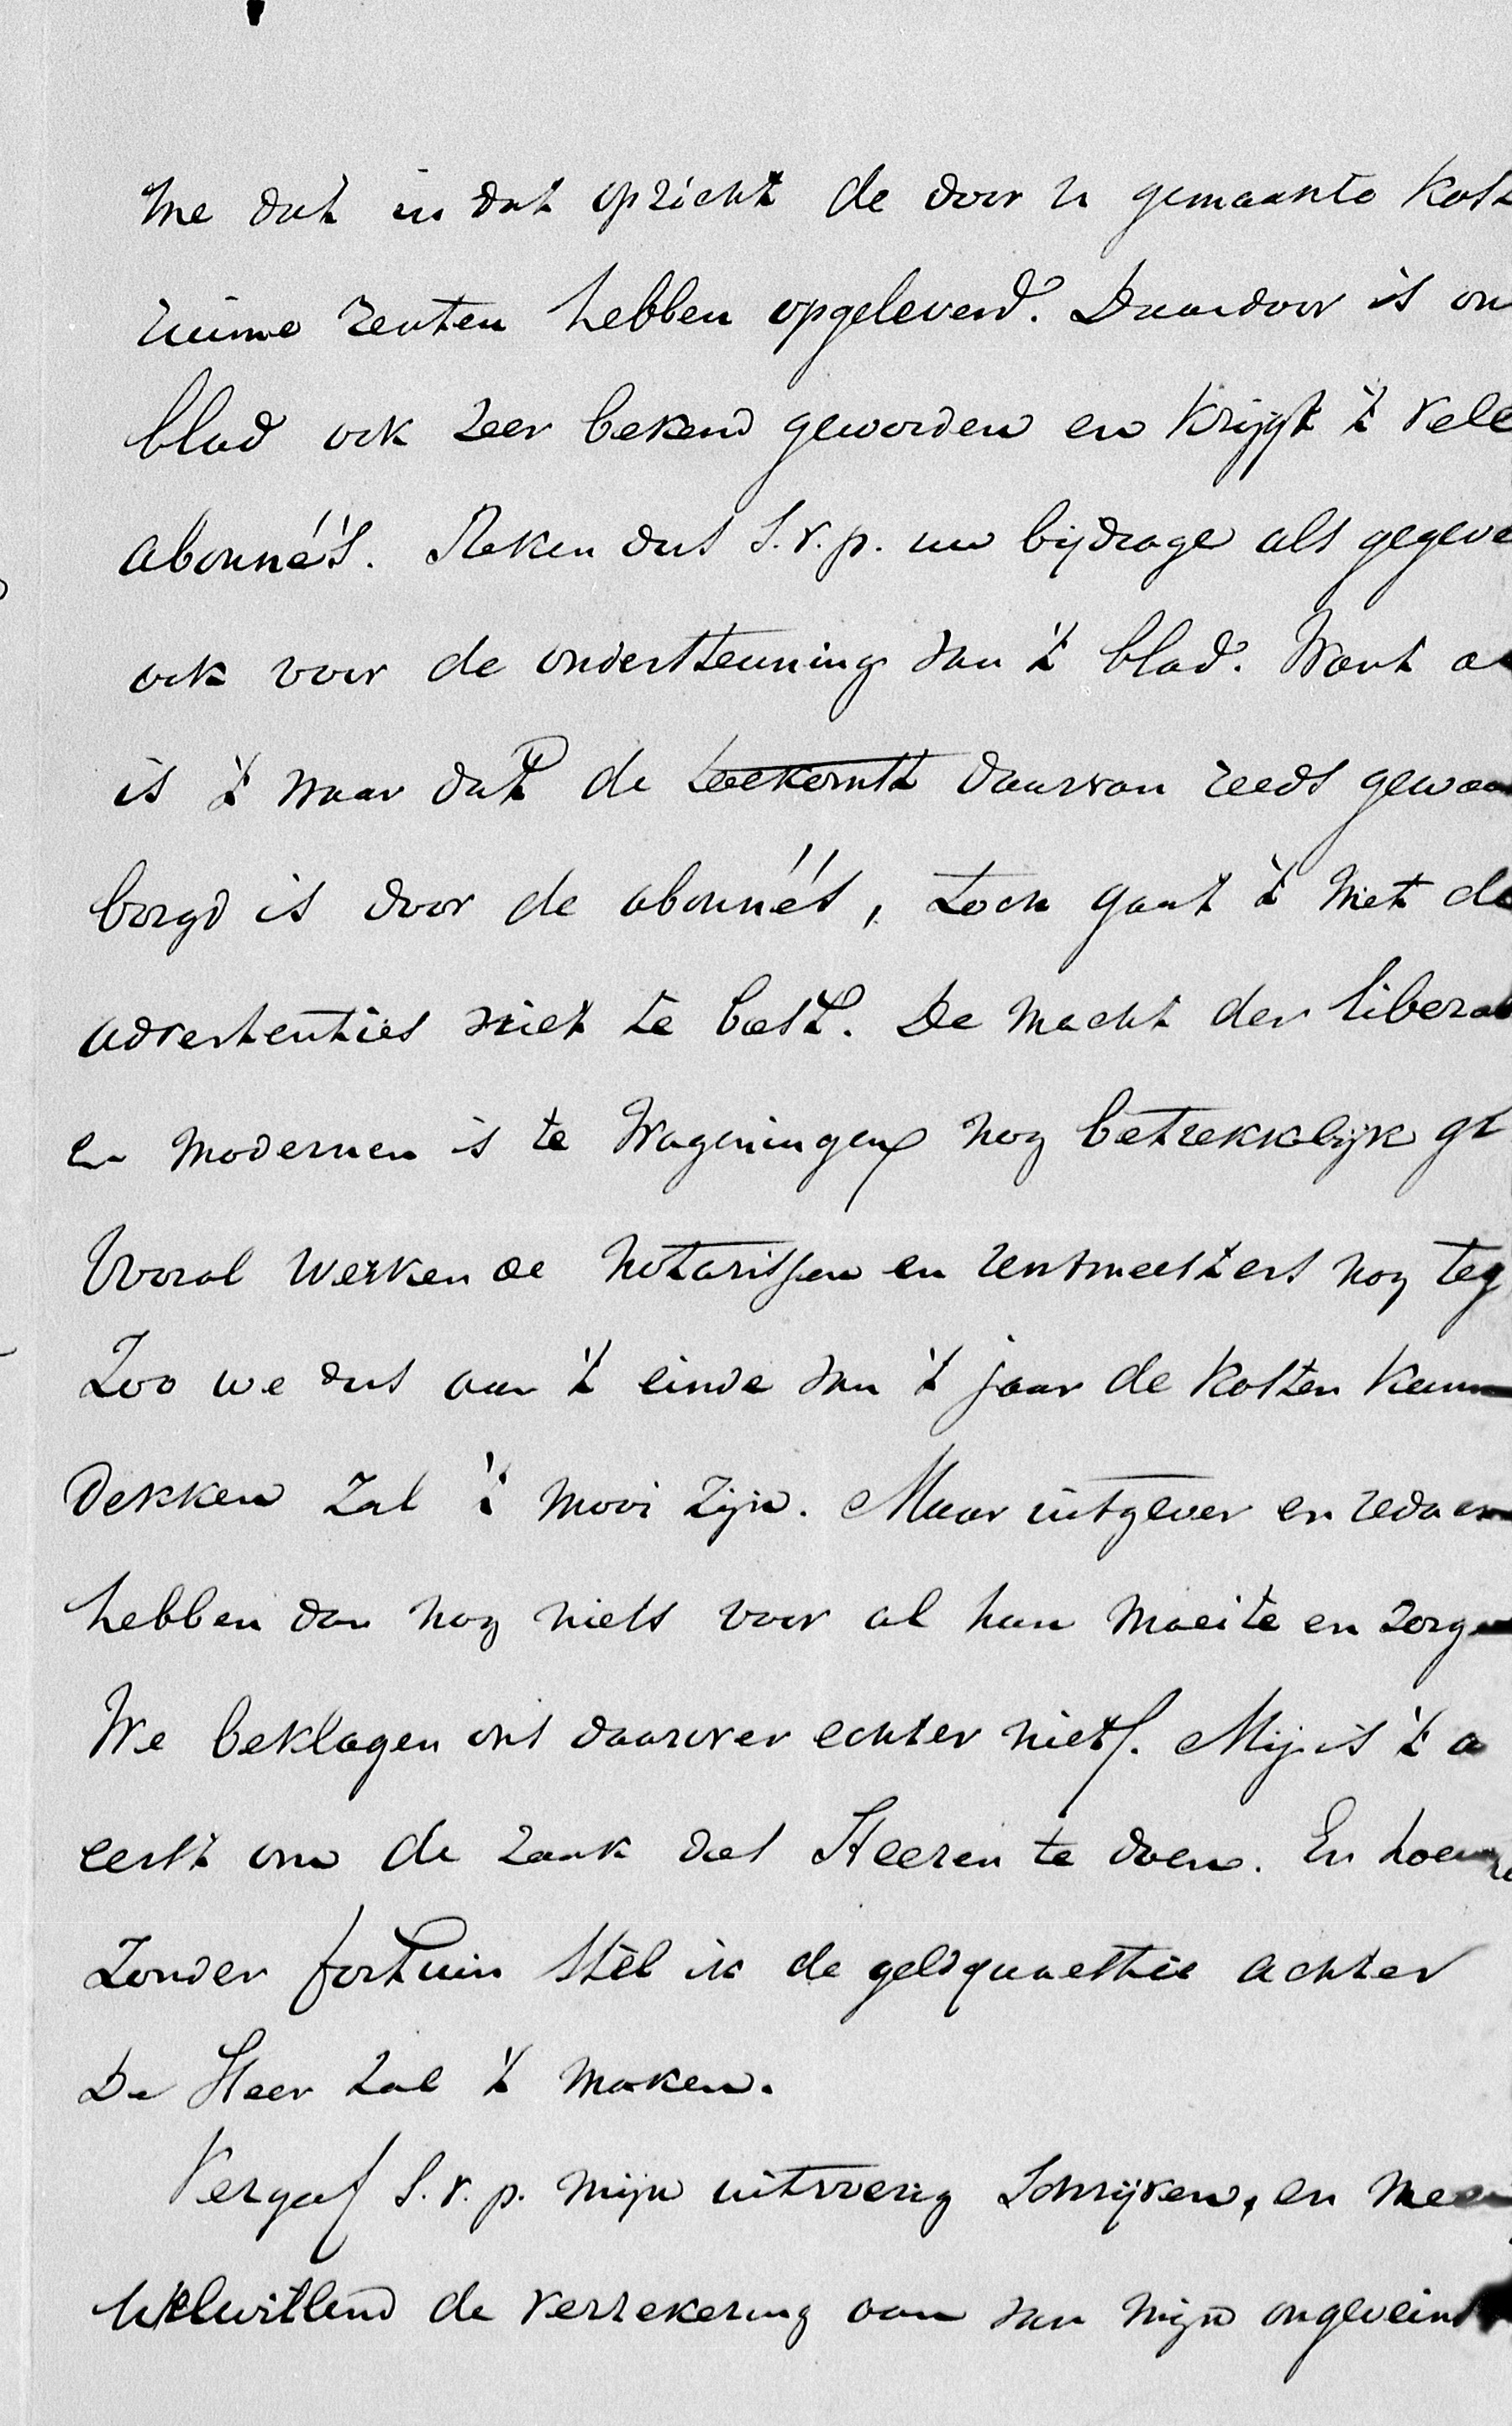 me dat in dat opzicht de door u gemaakte kost
ruime renten hebben opgeleverd. Daardoor is on
blad ook zeer bekend geworden en krijgt 't vele
abonné's. Reken dus s.v.p. uw bijdrage als gegeve
ook voor de ondersteuning van 't blad. Want a
is 't waar dat de toekomst daarvan reeds gewaa
borgd is door de abonné's, toch gaat 't met de
advertenties niet te best. De macht der liberal
en modernen is te Wageningen nog betrekkelijk gr
Vooral werken de notarissen en rentmeesters nog teg
Zoo we dus aan 't einde van 't jaar de kosten kunn
dekken zal 't mooi zijn. Maar uitgever en redac
hebben dan nog niets voor al hun moeite en zorg
We beklagen ons daarover echter niet. Mij is 't a
eerst om de zaak des Heeren te doen. En hoew
zonder fortuin stel ik de geldquaestie achter
De Heer zal 't maken.
Vergeef s.v.p. mijn uitvoerig schrijven, en nee
welwillend de verzekering aan van mijn ongevein